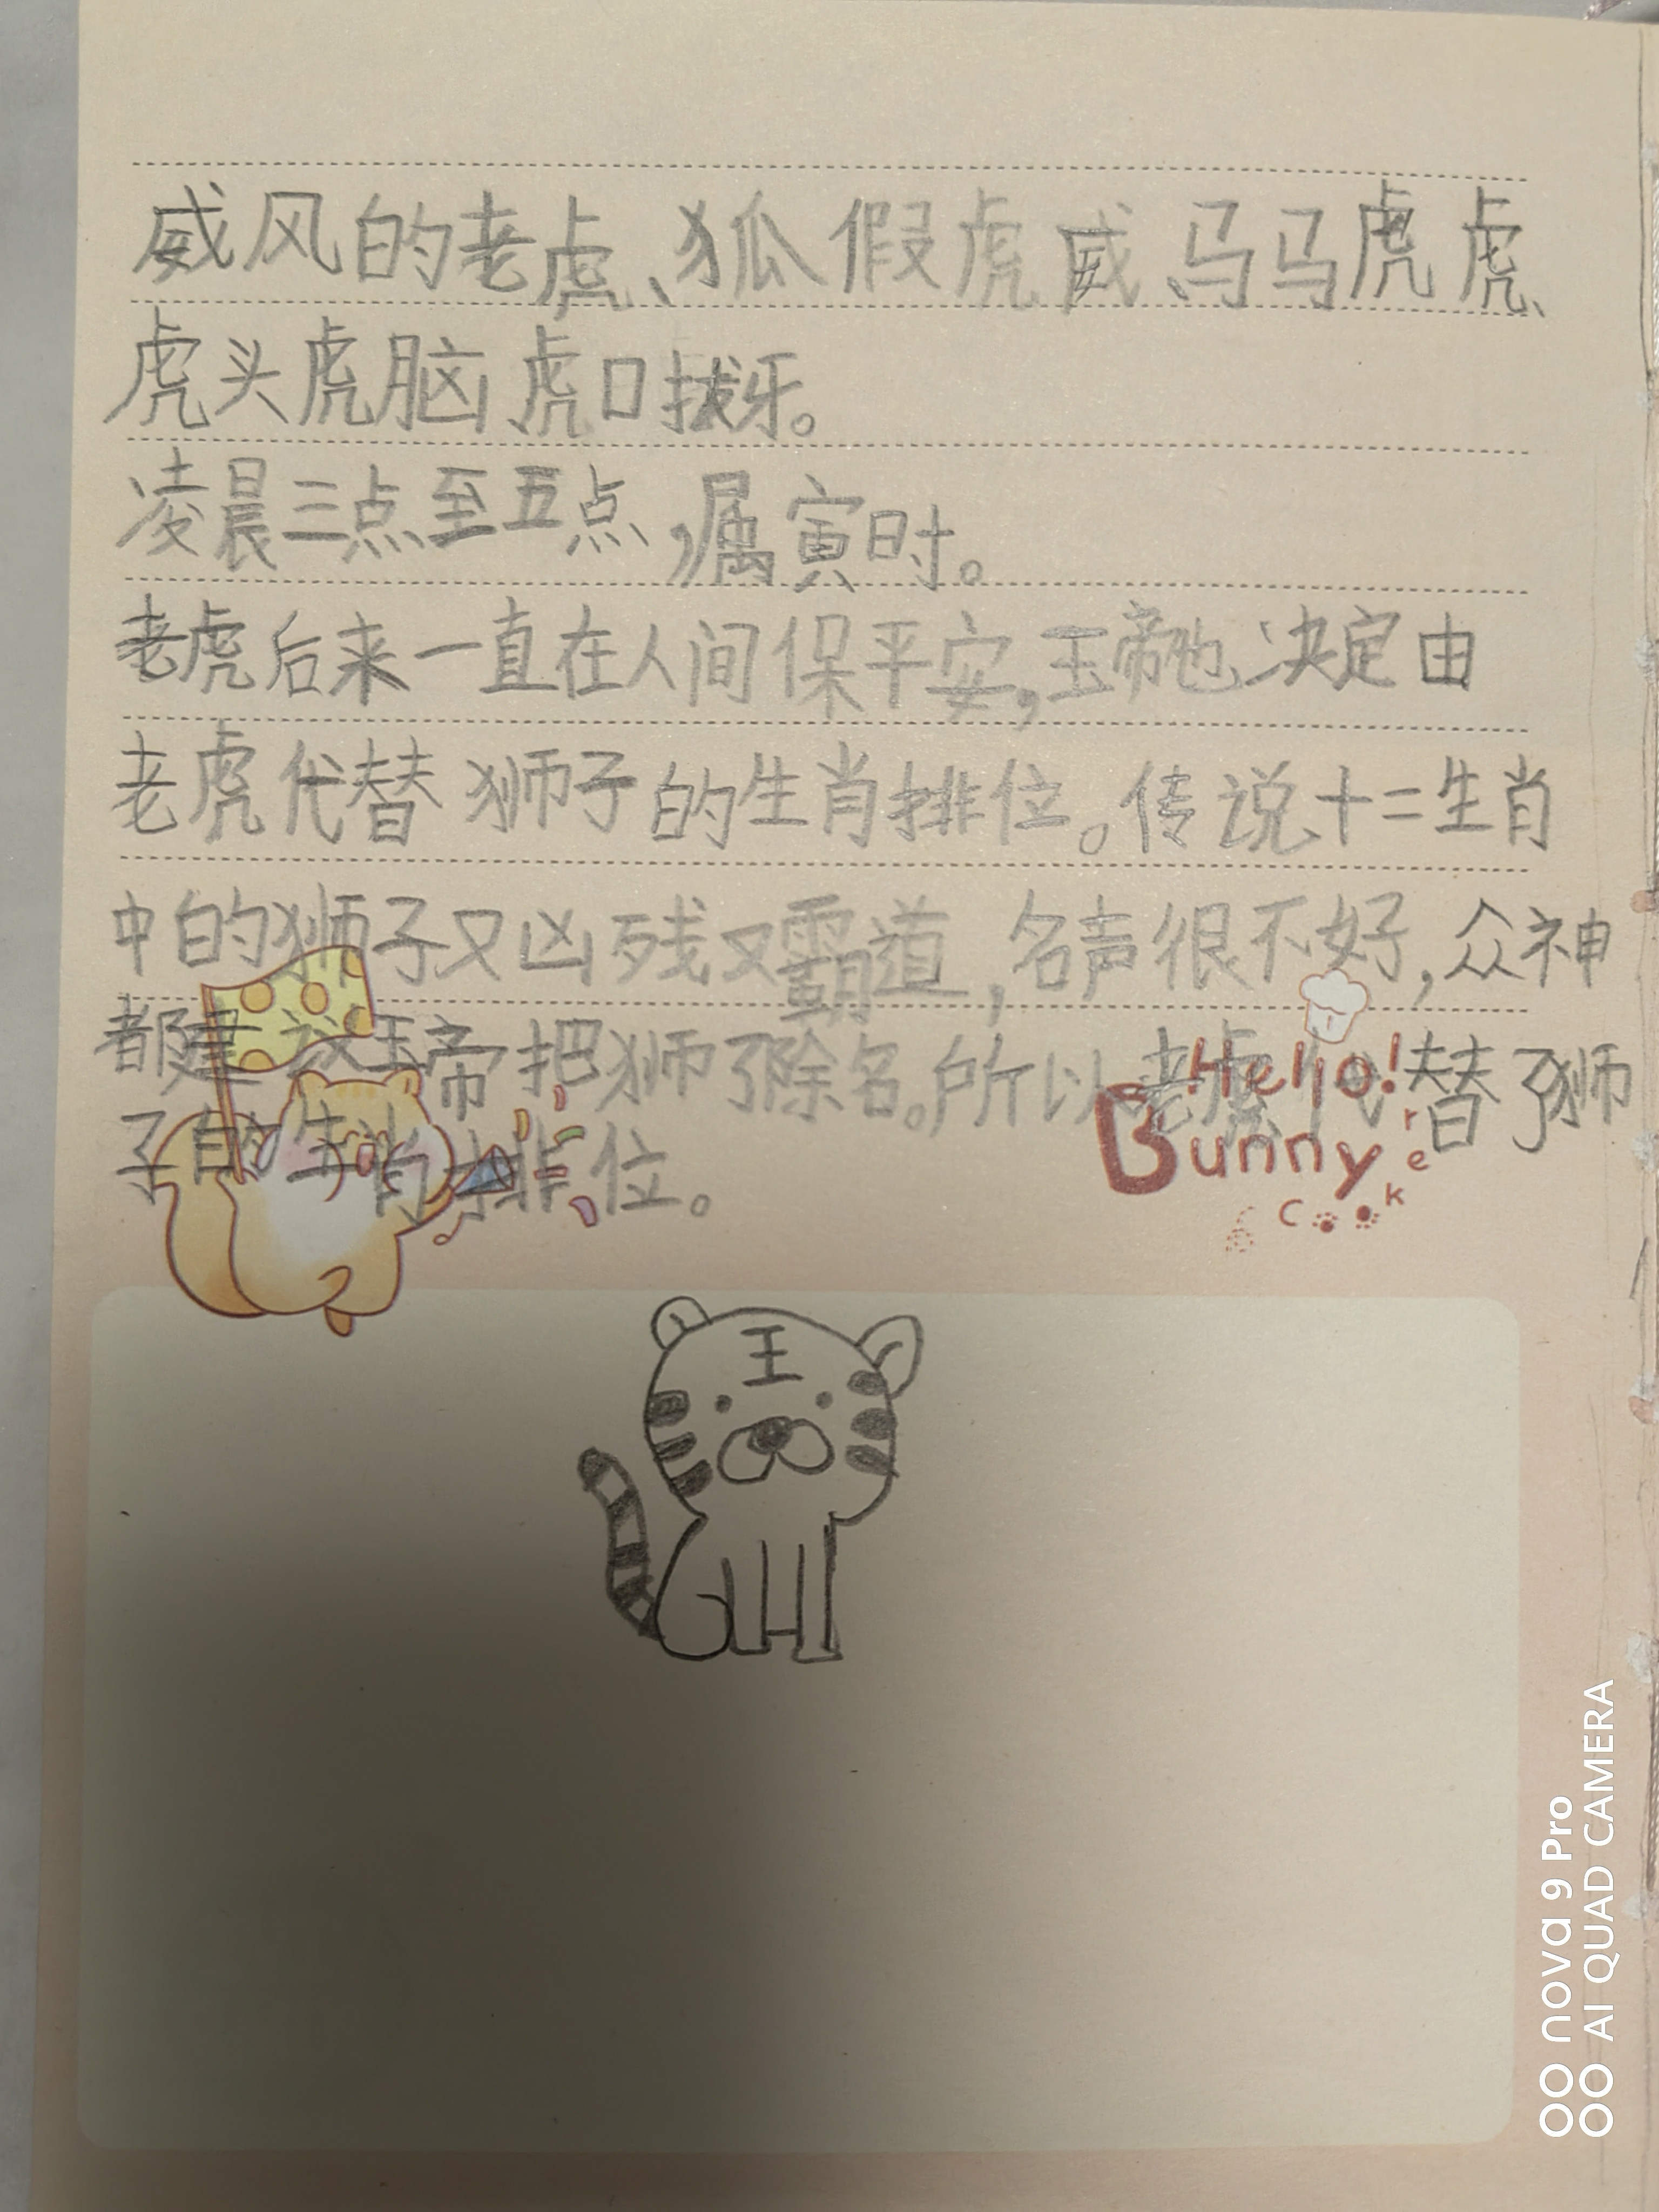 威风的老虎、狐假虎威、马马虎虎、
虎头虎脑、虎口拔牙。
凌晨三点至五点，属寅时。
老虎后来一直在人间保平安，玉帝也决定由
老虎代替狮子的生肖排位。传说十二生肖
中的狮子又凶残又霸道，名声很不好，众神
都建议玉帝把狮子除名。所以老虎代替了狮
子的生肖排位。
Hello!
Bunny
Cooker
王
nova 9 Pro
AI QUAD CAMERA